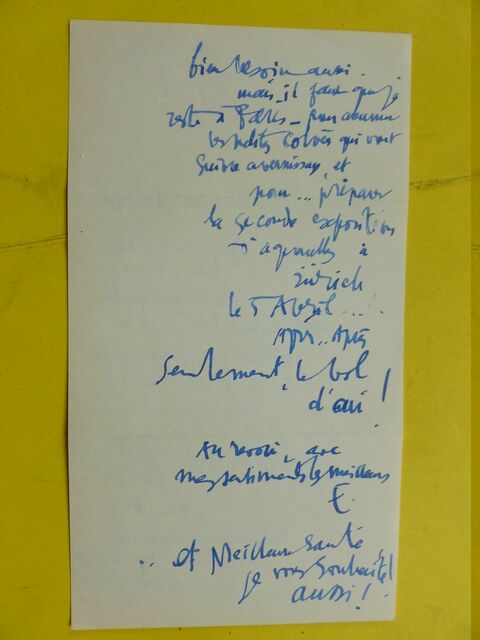 bien besoin aussi.
mais il faut que je
reste à Paris – pour assumer
les petites corvées qui vont
suivre ce vernissage, et
pour... préparer
la seconde exposition
d'aquarelles à
Zürich
le 5 Avril....
Après.. Après
seulement, le bol
d'air !
Au revoir, avec
mes sentiments les meilleurs
E.
.. et Meilleure Santé
je vous souhaite !
aussi !